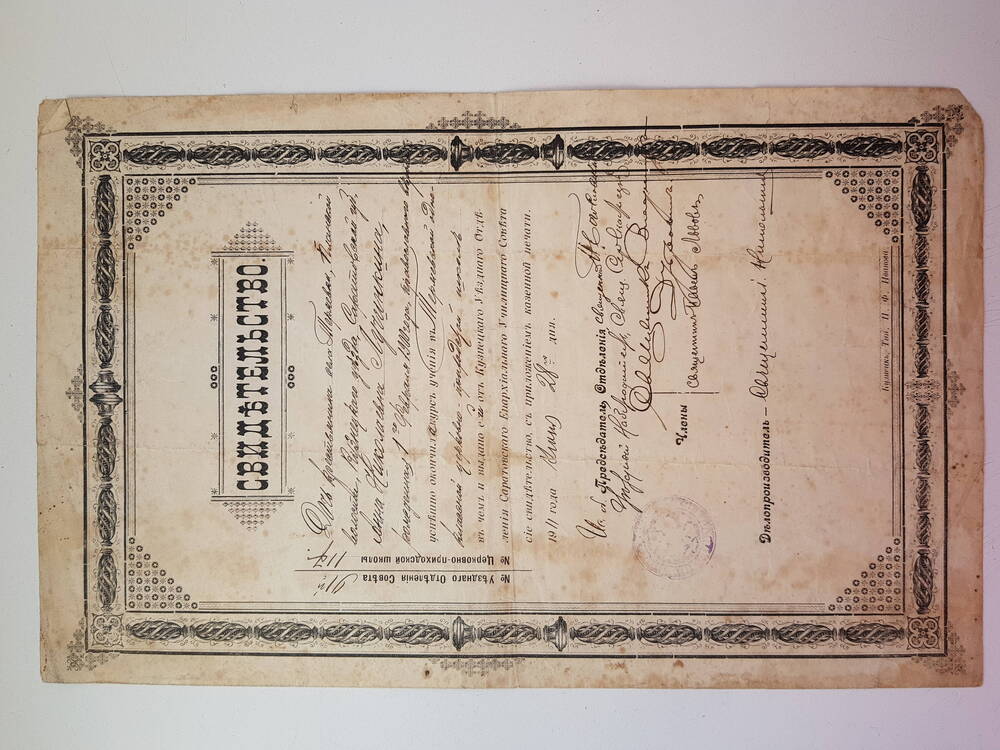 СВИДѢТЕЛЬСТВО.
№ Уѣзднаго Отдѣленія Совѣта 91й
№ Церковно-приходской школы 117.
Дочь крестьянина села
волости, Кузнецкаго уѣзда, Саратовской губ.
Анна Николаевна Лучинкина,
рожденная 1го Февраля 1900 года, православнаго
успѣшно окончила курсъ ученія въ одно-
классной церковно-приходской школѣ
въ чемъ и выдано ей отъ Кузнецкаго Уѣзднаго Отдѣ-
ленія Саратовскаго Епархіальнаго Училищнаго Совѣта
сіе свидѣтельство, съ приложеніемъ казенной печати.
1911 года Іюня 28го дня.
И. об. Предсѣдатель Отдѣленія священникъ
Уѣздный Наблюдатель, Свящ.
Священникъ
Члены
Священникъ Павелъ Львовъ
Дѣлопроизводитель — Священникъ
Кузнецкъ, Тип. П. Ф. Иванова.